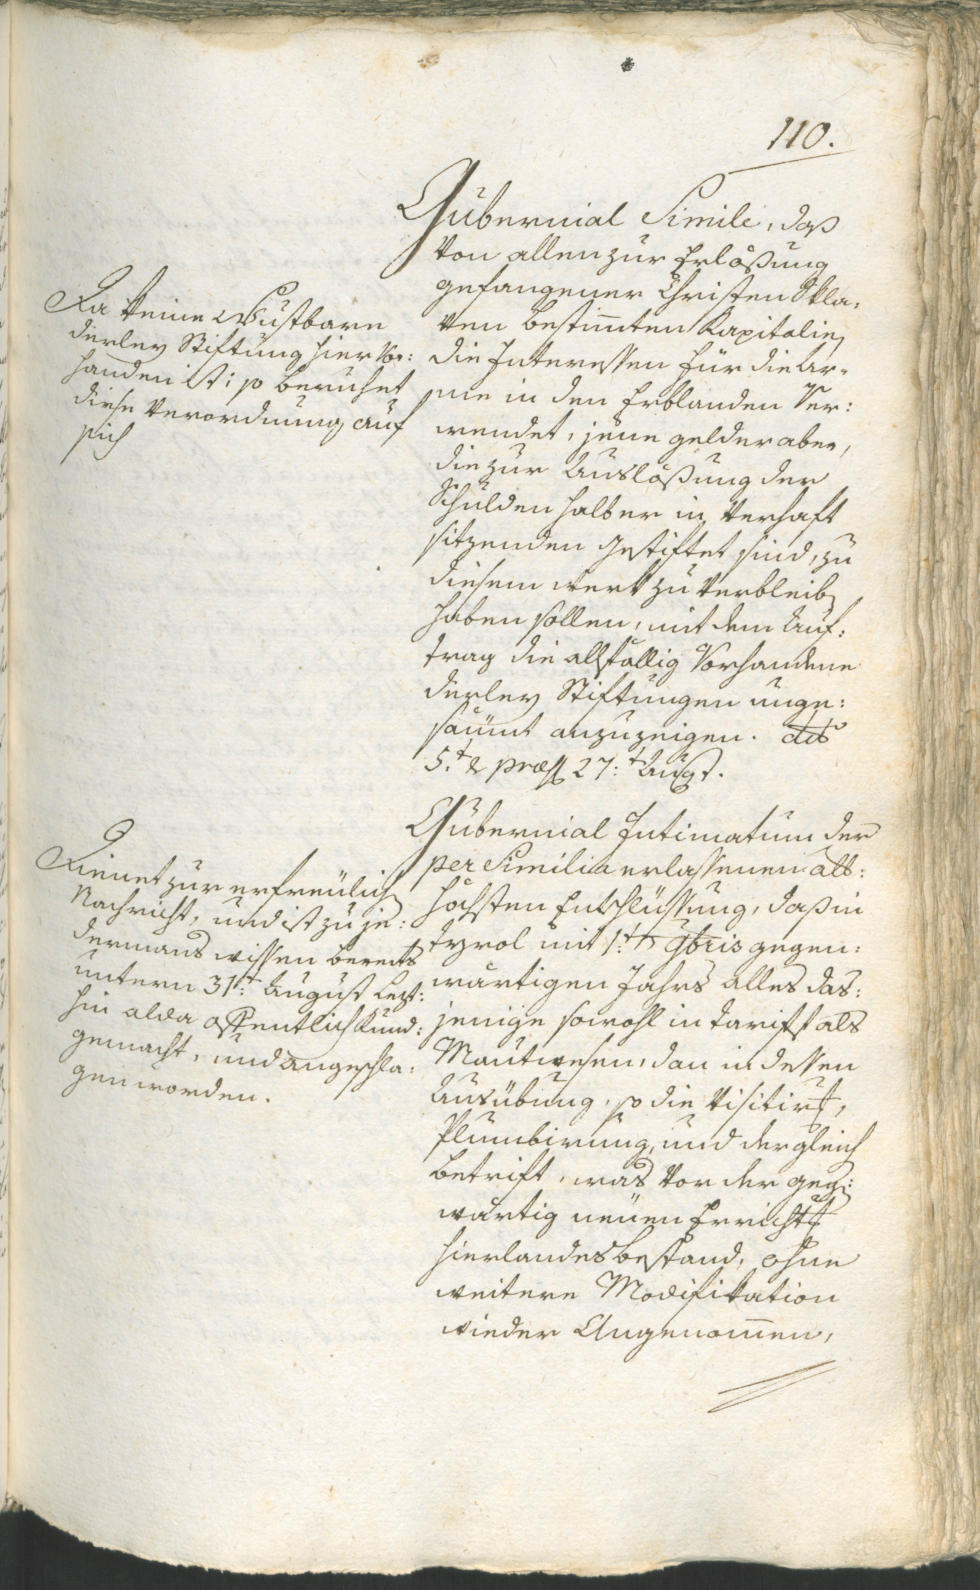 110.
Gubernial Simile, daß
von allen zur Erlößung
gefangener Christen Skla,
ven bestim̅ten Kapitalien
die Interessen für die Ar-
me in den Erblanden Ver:
wendet, jene gelder aber,
die zur Auslößung der
Schulden halber in Verhaft
sitzenden gestiftet sind, zu
diesem werk zu verbleiben
haben sollen, mit dem Auf:
trag die allfällig Vorhandene
derley Stiftungen unge:
säumt anzuzeigen. dto
5.t & præs 27.t Augst.
Da keine Wustbare
derley Stiftung hier Vor:
handen ist; so beruhet
diese Verordnung auf
sich
Gubernial Intimatum der
per Similia erlassenen all:
höchsten Entschlüssung, daß in
Tyrol mit 1.t 9bris gegen:
wärtigen Jahrs alles das:
jenige sowohl in Tariffs als
Mautwesen, dan in dessen
Ausübung, so die Visitirung,
Plumbirung, und dergleich
betrift, was vor der geg:
wärtig neuen Errichtung
hierlandes bestand, ohne
weitere Modifikation
wieder Angenom̅en,
Dienet zur erfreulichen
Nachricht, und ist zu je:
dermans wissen bereits
untern 31.t August letzt:
hin alda öffentlich kund:
gemacht, und angeschla:
gen worden.